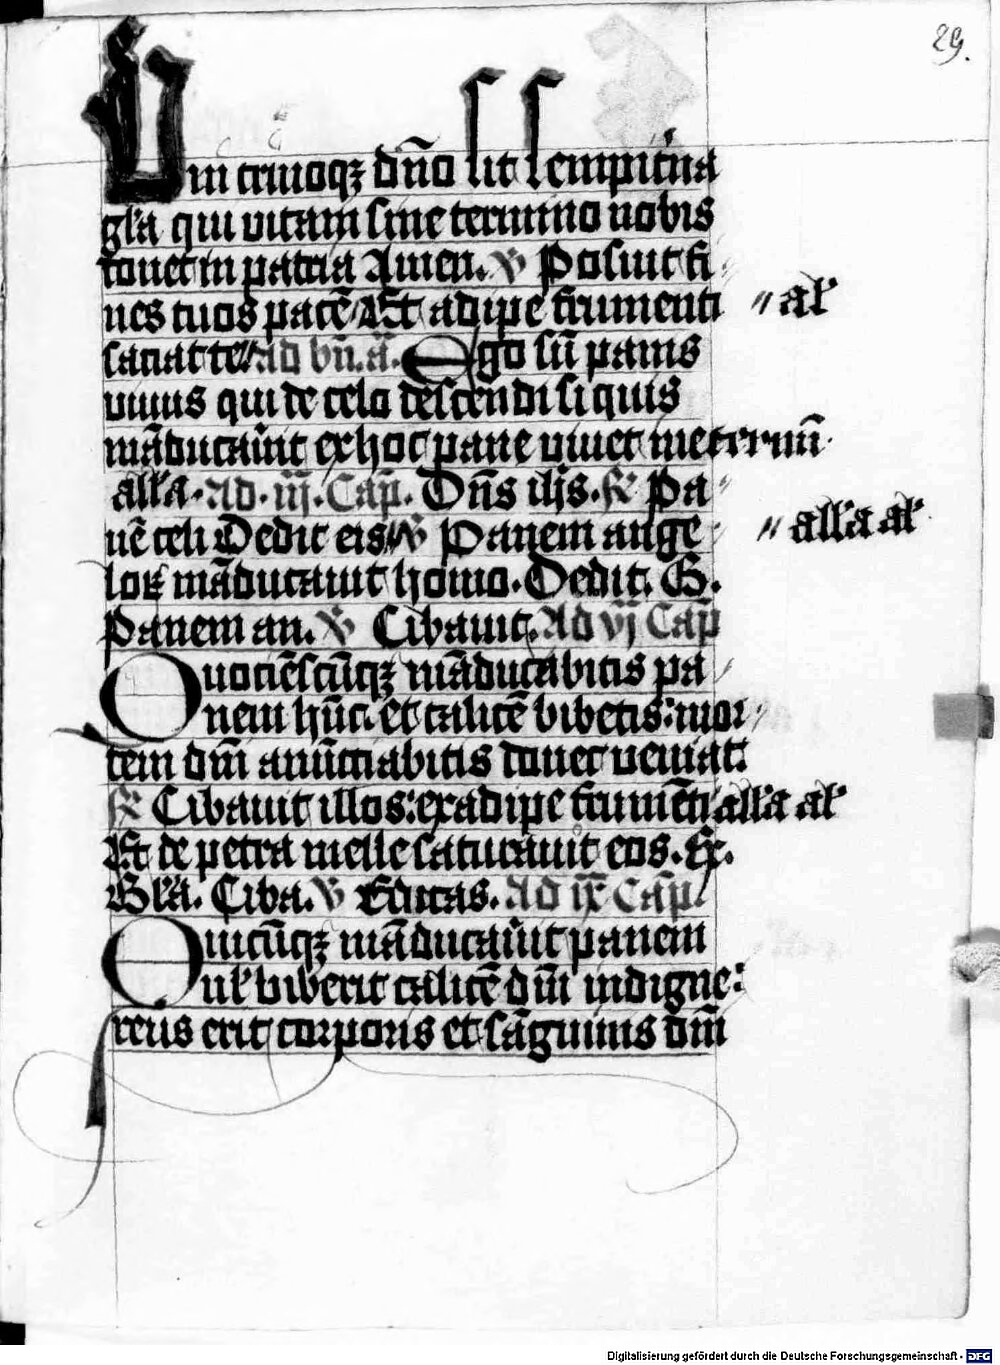 29.
Uni trinoqꝫ dn̄o sit sempit̾na
gl̾a qui vitam sine termino nobis
donet in patria Amen. ℣ Posuit fi〃
nes tuos pacē Et adipe frumenti 〃al̾
saciat te ad bn̄. a. Ego sū panis
viuus qui de celo descendi si quis
māducau̾it ex hoc pane viuet in eternū.
all̾a. Ad. iij. Cap̄. Dn̄s ih̄s. ℟ Pa〃
nē celi Dedit eis ℣ Panem ange 〃all̾a al̾
loꝝ māducauit homo. Dedit. G.
Panem an. ℣ Cibauit. Ad vj Cap̄
Quociēscūqꝫ māducabitis pa〃
nem hūc. et calicē bibetis: mor〃
tem dn̄i anūciabitis donec veniat:
℟ Cibauit illos: ex adipe frumēti all̾a al̾
Et de petra melle saturauit eos. Ex.
Gl̾a. Ciba. ℣ Educas. Ad ix Cap̄
Quicūqꝫ māducau̾it panem
uel̾ biberit calicē dn̄i indigne:
reus erit corporis et sāguinis dn̄i
Digitalisierung gefördert durch die Deutsche Forschungsgemeinschaft - DFG